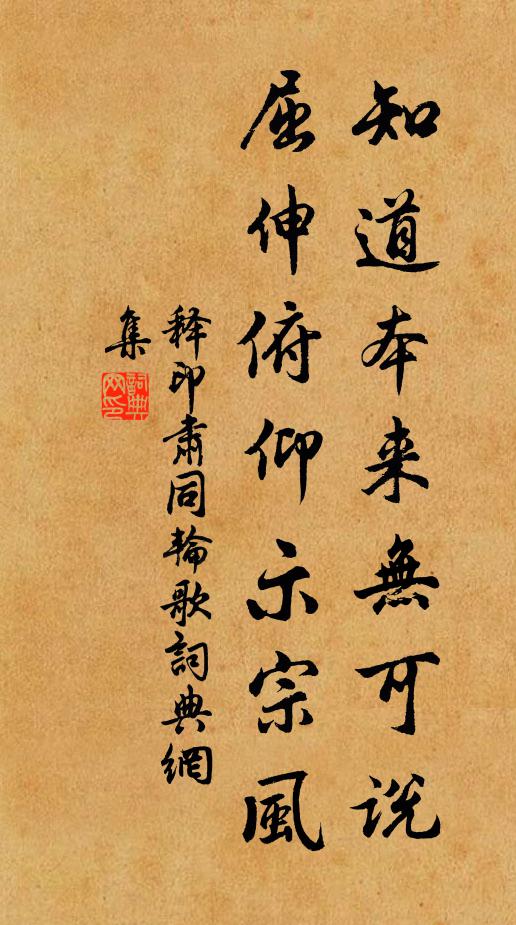 知道本来無可说
屈伸俯仰示宗風
释印肃同輪歌詞典網
集
詞典
网印